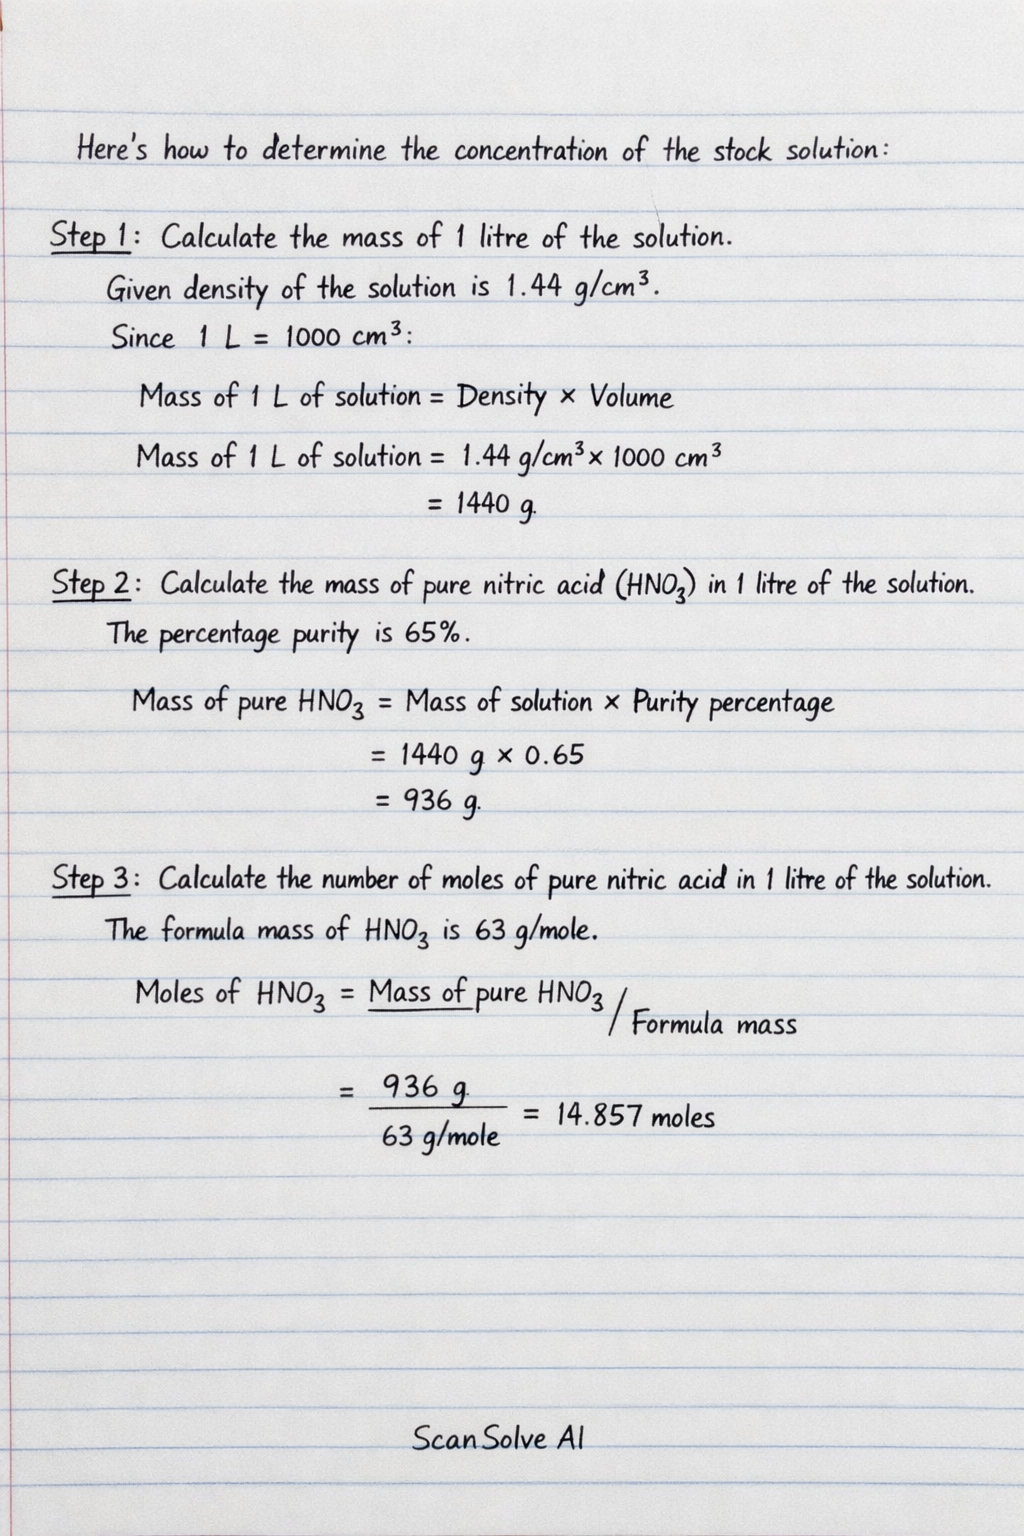 Here's how to determine the concentration of the stock solution:
Step 1: Calculate the mass of 1 litre of the solution.
Given density of the solution is 1.44 g/cm³.
Since 1 L = 1000 cm³:
Mass of 1 L of solution = Density × Volume
Mass of 1 L of solution = 1.44 g/cm³ × 1000 cm³
= 1440 g.
Step 2: Calculate the mass of pure nitric acid (HNO₃) in 1 litre of the solution.
The percentage purity is 65%.
Mass of pure HNO₃ = Mass of solution × Purity percentage
= 1440 g × 0.65
= 936 g.
Step 3: Calculate the number of moles of pure nitric acid in 1 litre of the solution.
The formula mass of HNO₃ is 63 g/mole.
Moles of HNO₃ = Mass of pure HNO₃ / Formula mass
= 936 g. / 63 g/mole = 14.857 moles
ScanSolve AI